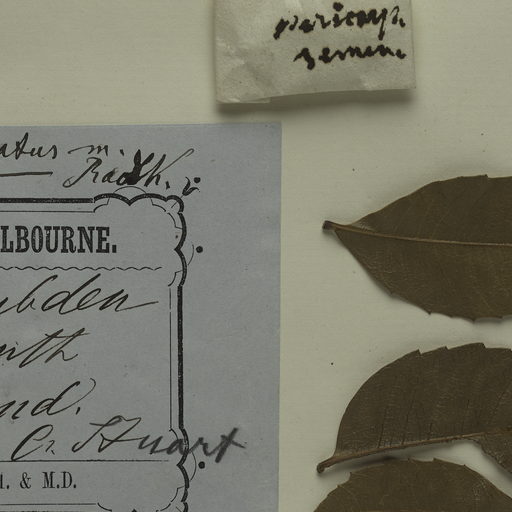 pericarp
semine
atus m.
Radlk.
LBOURNE.
bden
nd.
C. Stuart
. & M.D.